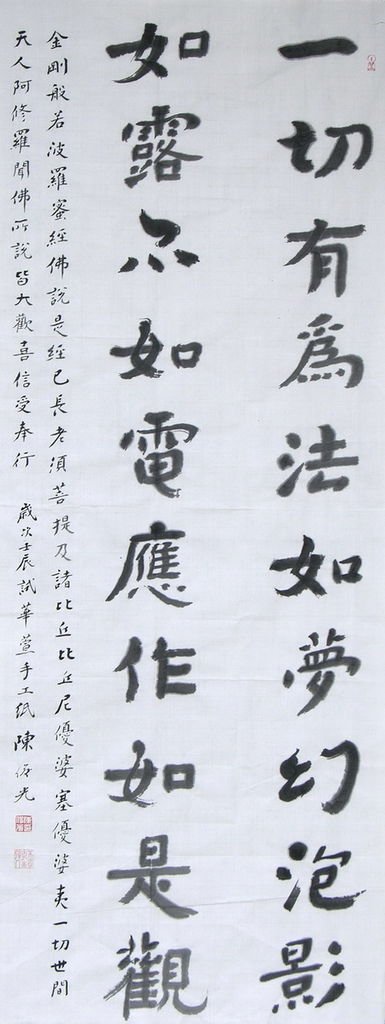 一切有為法如夢幻泡影
如露亦如電應作如是觀
金剛般若波羅蜜經佛說是經已長老須菩提及諸比丘比丘尼優婆塞優婆夷一切世間
天人阿修羅聞佛所說皆大歡喜信受奉行 歲次壬辰試華萱手工紙 陳